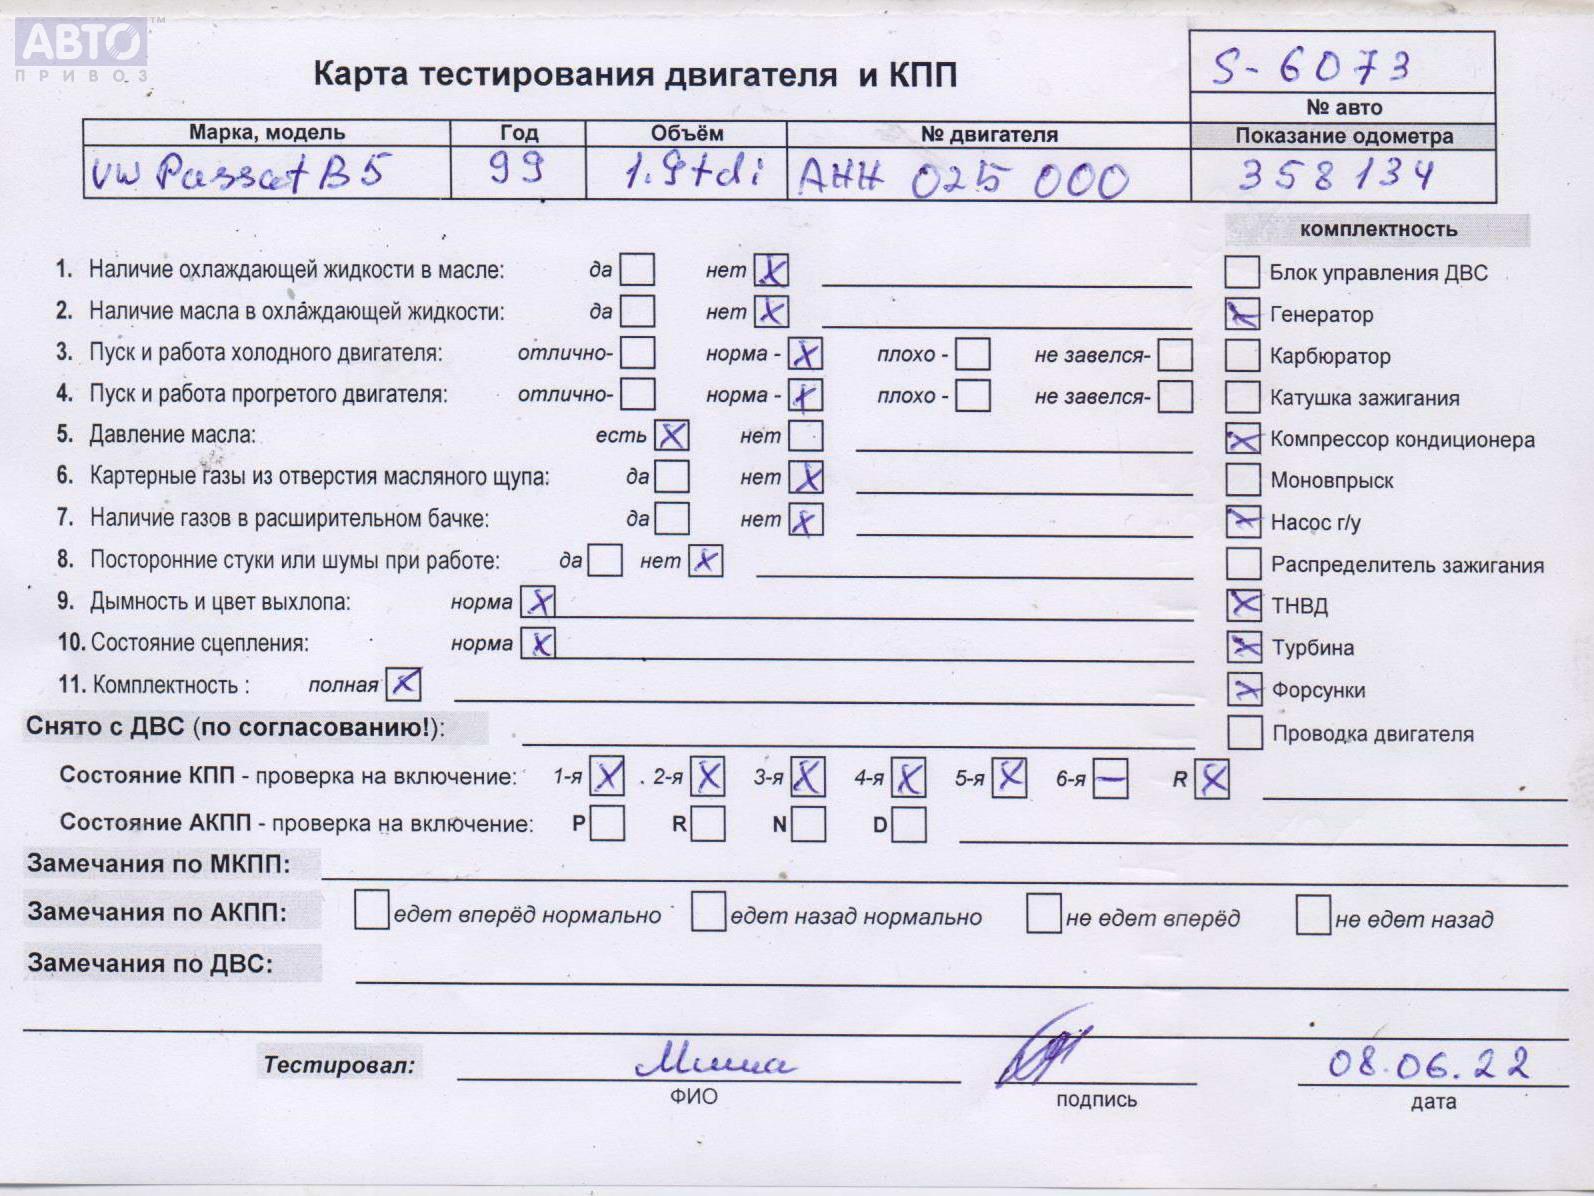 АВТО™
ПРИВОЗ
Карта тестирования двигателя и КПП
S-6073
№ авто
Марка, модель Год Объём № двигателя Показание одометра
VW Passat B5 99 1.9tdi AHH 025 000 358134
комплектность
1. Наличие охлаждающей жидкости в масле: да нет X
Блок управления ДВС
2. Наличие масла в охлаждающей жидкости: да нет X
X Генератор
3. Пуск и работа холодного двигателя: отлично- норма - X плохо - не завелся-
Карбюратор
4. Пуск и работа прогретого двигателя: отлично- норма - X плохо - не завелся-
Катушка зажигания
5. Давление масла: есть X нет
X Компрессор кондиционера
6. Картерные газы из отверстия масляного щупа: да нет X
Моновпрыск
7. Наличие газов в расширительном бачке: да нет X
X Насос г/у
8. Посторонние стуки или шумы при работе: да нет X
Распределитель зажигания
9. Дымность и цвет выхлопа: норма X
X ТНВД
10. Состояние сцепления: норма X
X Турбина
11. Комплектность : полная X
X Форсунки
Снято с ДВС (по согласованию!):
Проводка двигателя
Состояние КПП - проверка на включение: 1-я X . 2-я X 3-я X 4-я X 5-я X 6-я — R X
Состояние АКПП - проверка на включение: P R N D
Замечания по МКПП:
Замечания по АКПП: едет вперёд нормально едет назад нормально не едет вперёд не едет назад
Замечания по ДВС:
Тестировал: Миша 08.06.22
ФИО подпись дата